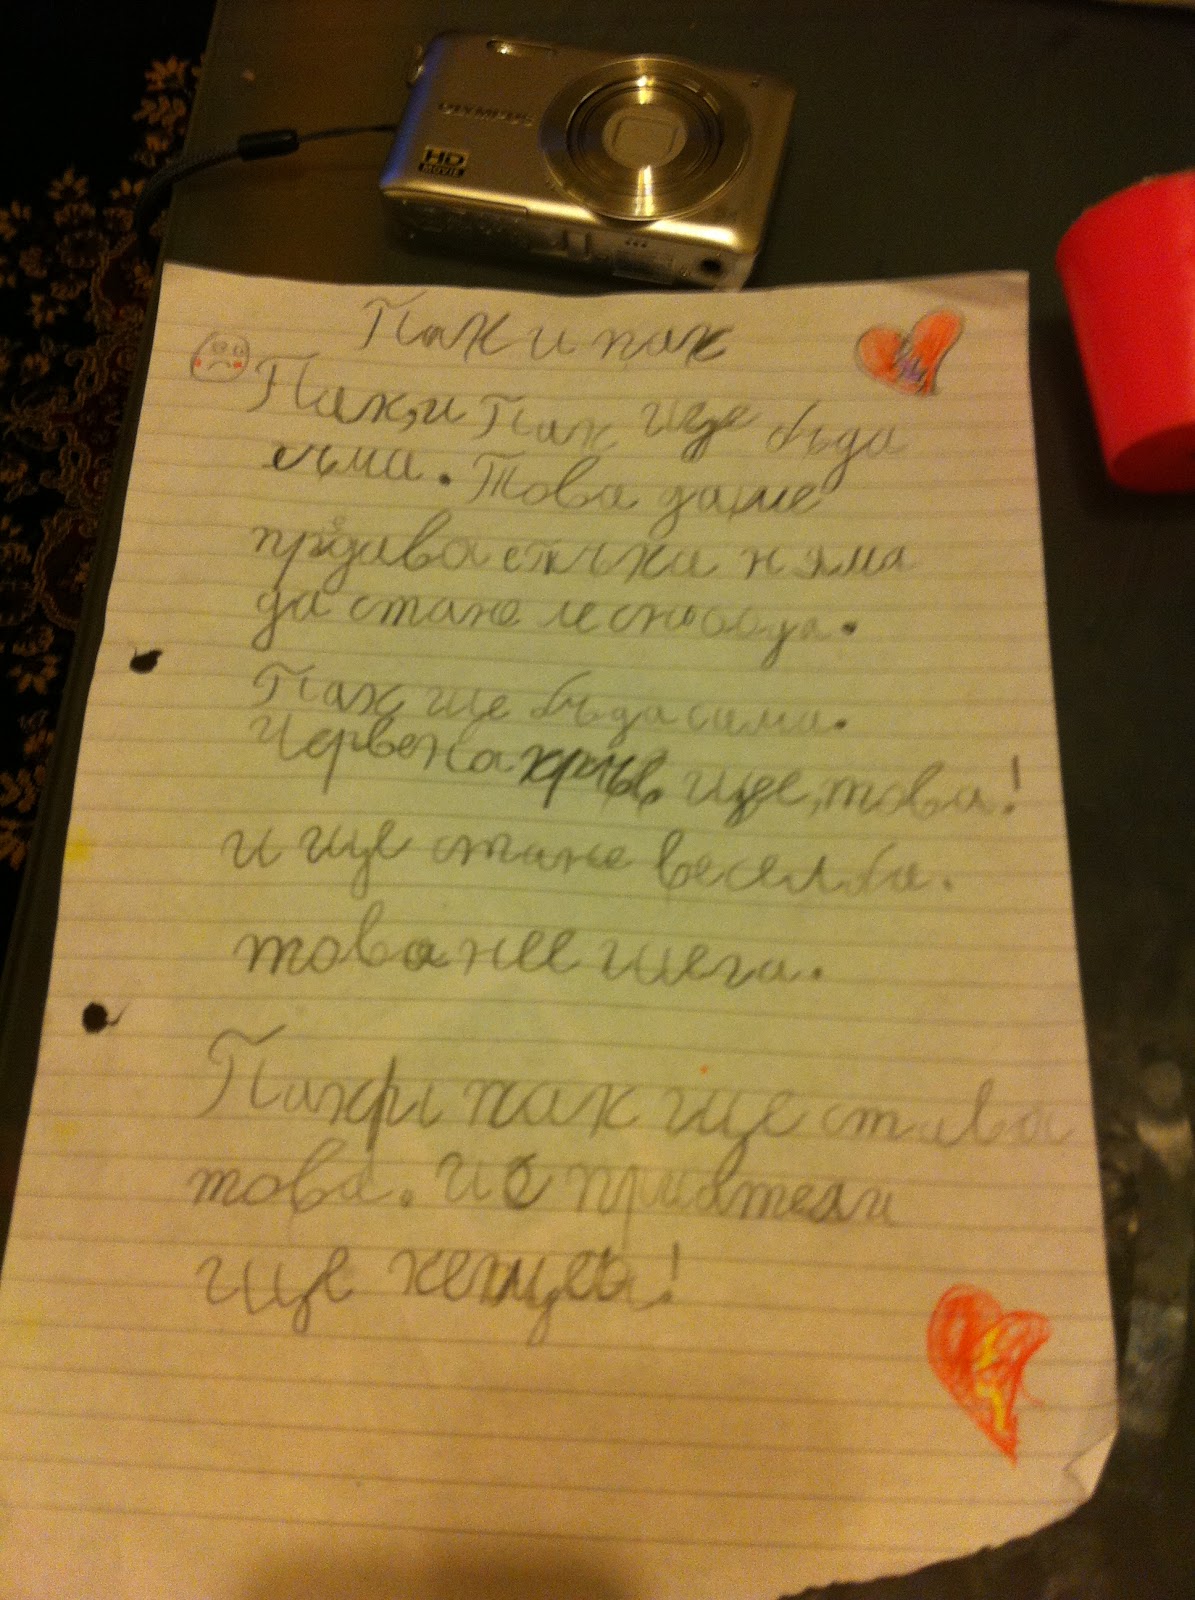 OLYMPUS
HD
MOVIE
Пак и пак
Пак, и Пак ще бъда
съма. Това да ме
предава стъпки няма
да стане
Пак ще бъда сама.
Червена кръв ще, това!
и ще стане веселба.
това не е шега.
Пак и пак ще става
това. И с приятели
ще